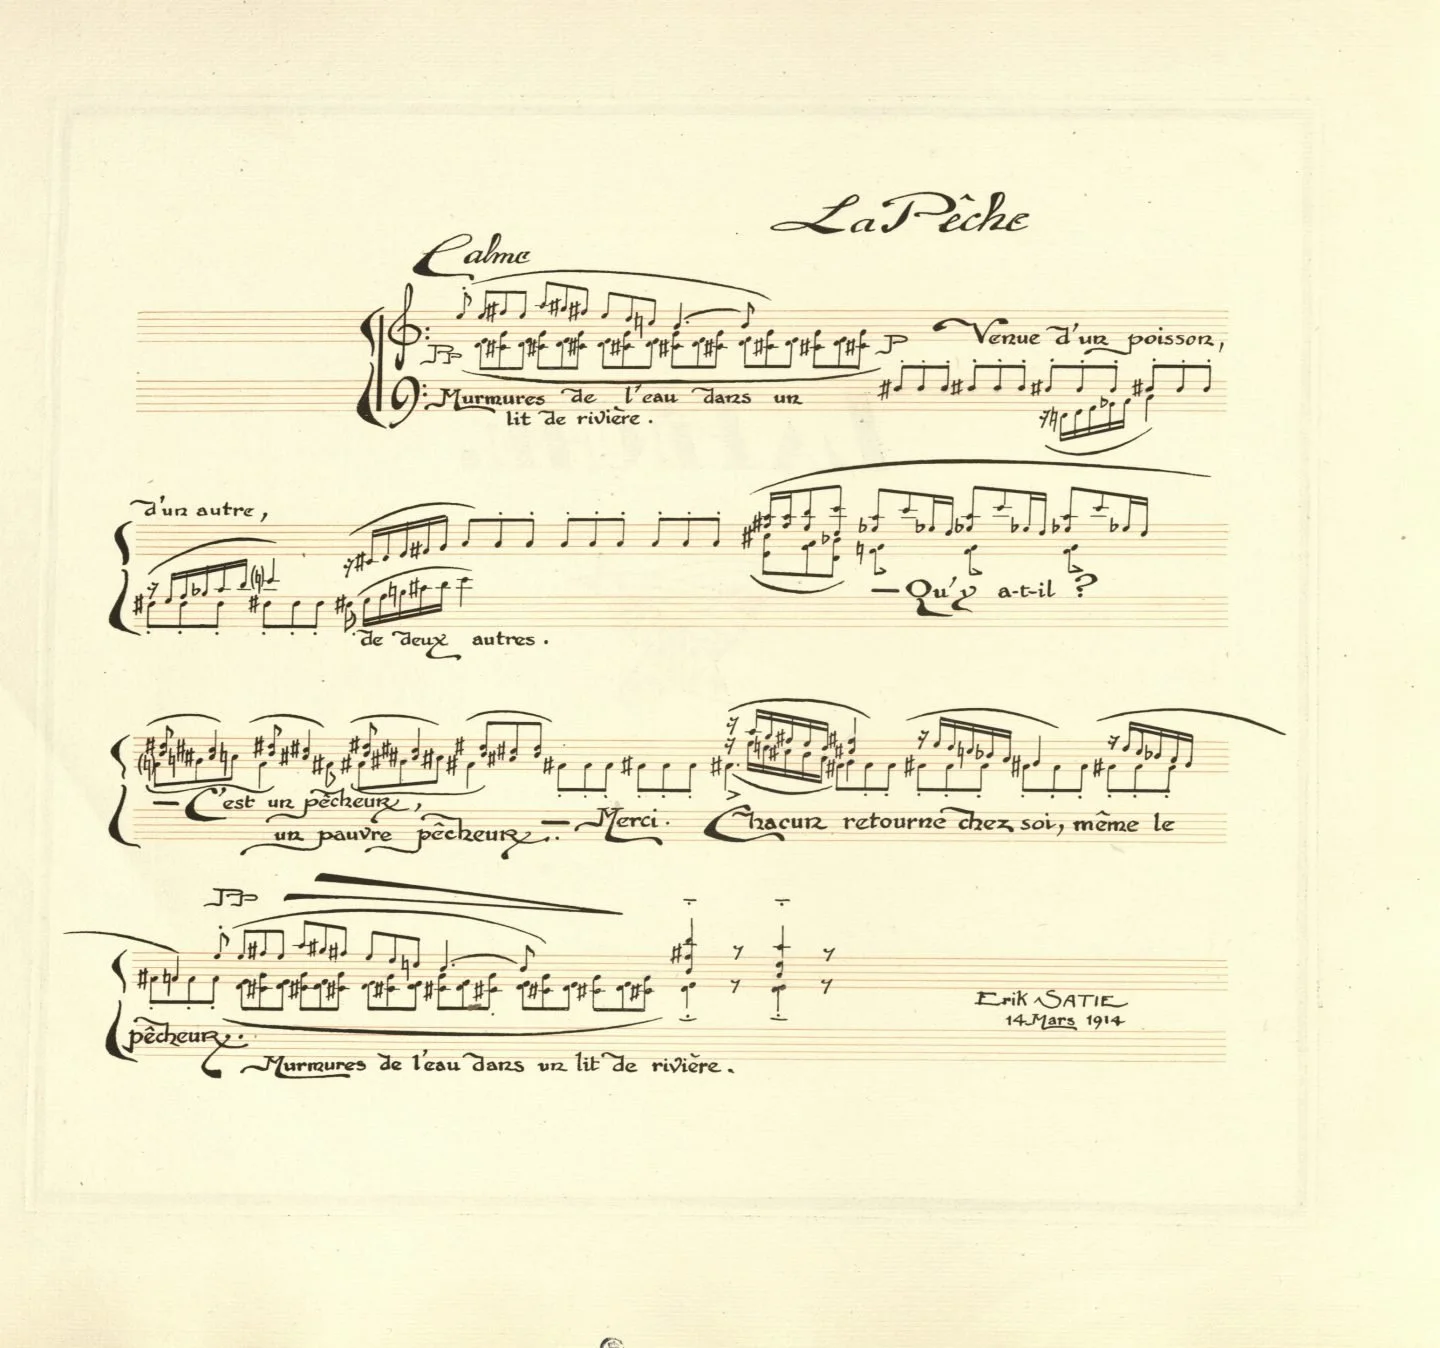 La Pêche
Calme
PP
P
Venue d'un poisson,
Murmures de l'eau dans un
lit de rivière.
d'un autre,
— Qu'y a-t-il ?
de deux autres.
— C'est un pêcheur,
un pauvre pêcheur..
— Merci. Chacun retourne chez soi, même le
PP
pêcheur..
Murmures de l'eau dans un lit de rivière.
Erik SATIE
14 Mars 1914